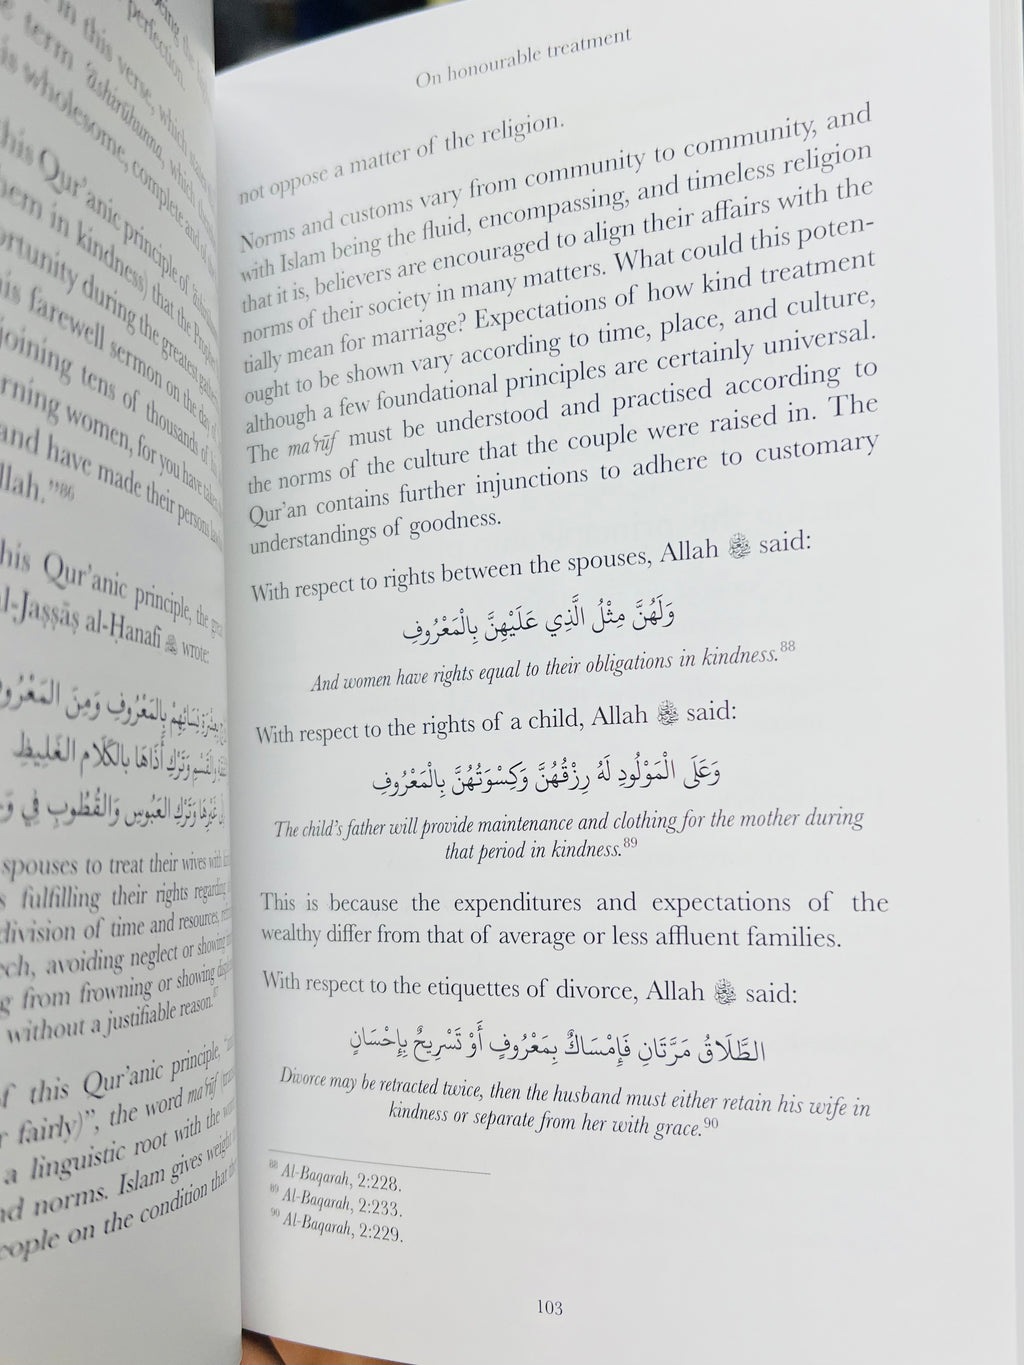 perfection.
in this verse, which
term 'āshirūhunna, which
is wholesome, complete and of
his Qur'anic principle of
hem in kindness) that the Prophet
ortunity during the greatest
his farewell sermon on the day of
joining tens of thousands of his
rning women, for you have taken
and have made their persons
llah."⁸⁶
his Qur'anic principle, the great
al-Jaṣṣāṣ al-Ḥanafī wrote:
نِسَائِهِمْ بِالْمَعْرُوفِ وَمِنَ الْمَعْرُوفِ
وَالْقَسْمِ وَتَرْكِ أَذَاهَا بِالْكَلَامِ الْغَلِيظِ
غَيْرِهَا وَتَرْكِ الْعَبُوسِ وَالْقُطُوبِ فِي
spouses to treat their wives with
s fulfilling their rights regarding
division of time and resources,
ech, avoiding neglect or showing
g from frowning or showing
without a justifiable reason.⁸⁷
of this Qur'anic principle,
r fairly)", the word ma'rūf
a linguistic root with the
nd norms. Islam gives weight
eople on the condition that
On honourable treatment
not oppose a matter of the religion.
Norms and customs vary from community to community, and
with Islam being the fluid, encompassing, and timeless religion
that it is, believers are encouraged to align their affairs with the
norms of their society in many matters. What could this poten-
tially mean for marriage? Expectations of how kind treatment
ought to be shown vary according to time, place, and culture,
although a few foundational principles are certainly universal.
The ma'rūf must be understood and practised according to
the norms of the culture that the couple were raised in. The
Qur'an contains further injunctions to adhere to customary
understandings of goodness.
With respect to rights between the spouses, Allah ﷻ said:
وَلَهُنَّ مِثْلُ الَّذِي عَلَيْهِنَّ بِالْمَعْرُوفِ
And women have rights equal to their obligations in kindness.⁸⁸
With respect to the rights of a child, Allah ﷻ said:
وَعَلَى الْمَوْلُودِ لَهُ رِزْقُهُنَّ وَكِسْوَتُهُنَّ بِالْمَعْرُوفِ
The child's father will provide maintenance and clothing for the mother during
that period in kindness.⁸⁹
This is because the expenditures and expectations of the
wealthy differ from that of average or less affluent families.
With respect to the etiquettes of divorce, Allah ﷻ said:
الطَّلَاقُ مَرَّتَانِ فَإِمْسَاكٌ بِمَعْرُوفٍ أَوْ تَسْرِيحٌ بِإِحْسَانٍ
Divorce may be retracted twice, then the husband must either retain his wife in
kindness or separate from her with grace.⁹⁰
⁸⁸ Al-Baqarah, 2:228.
⁸⁹ Al-Baqarah, 2:233.
⁹⁰ Al-Baqarah, 2:229.
103